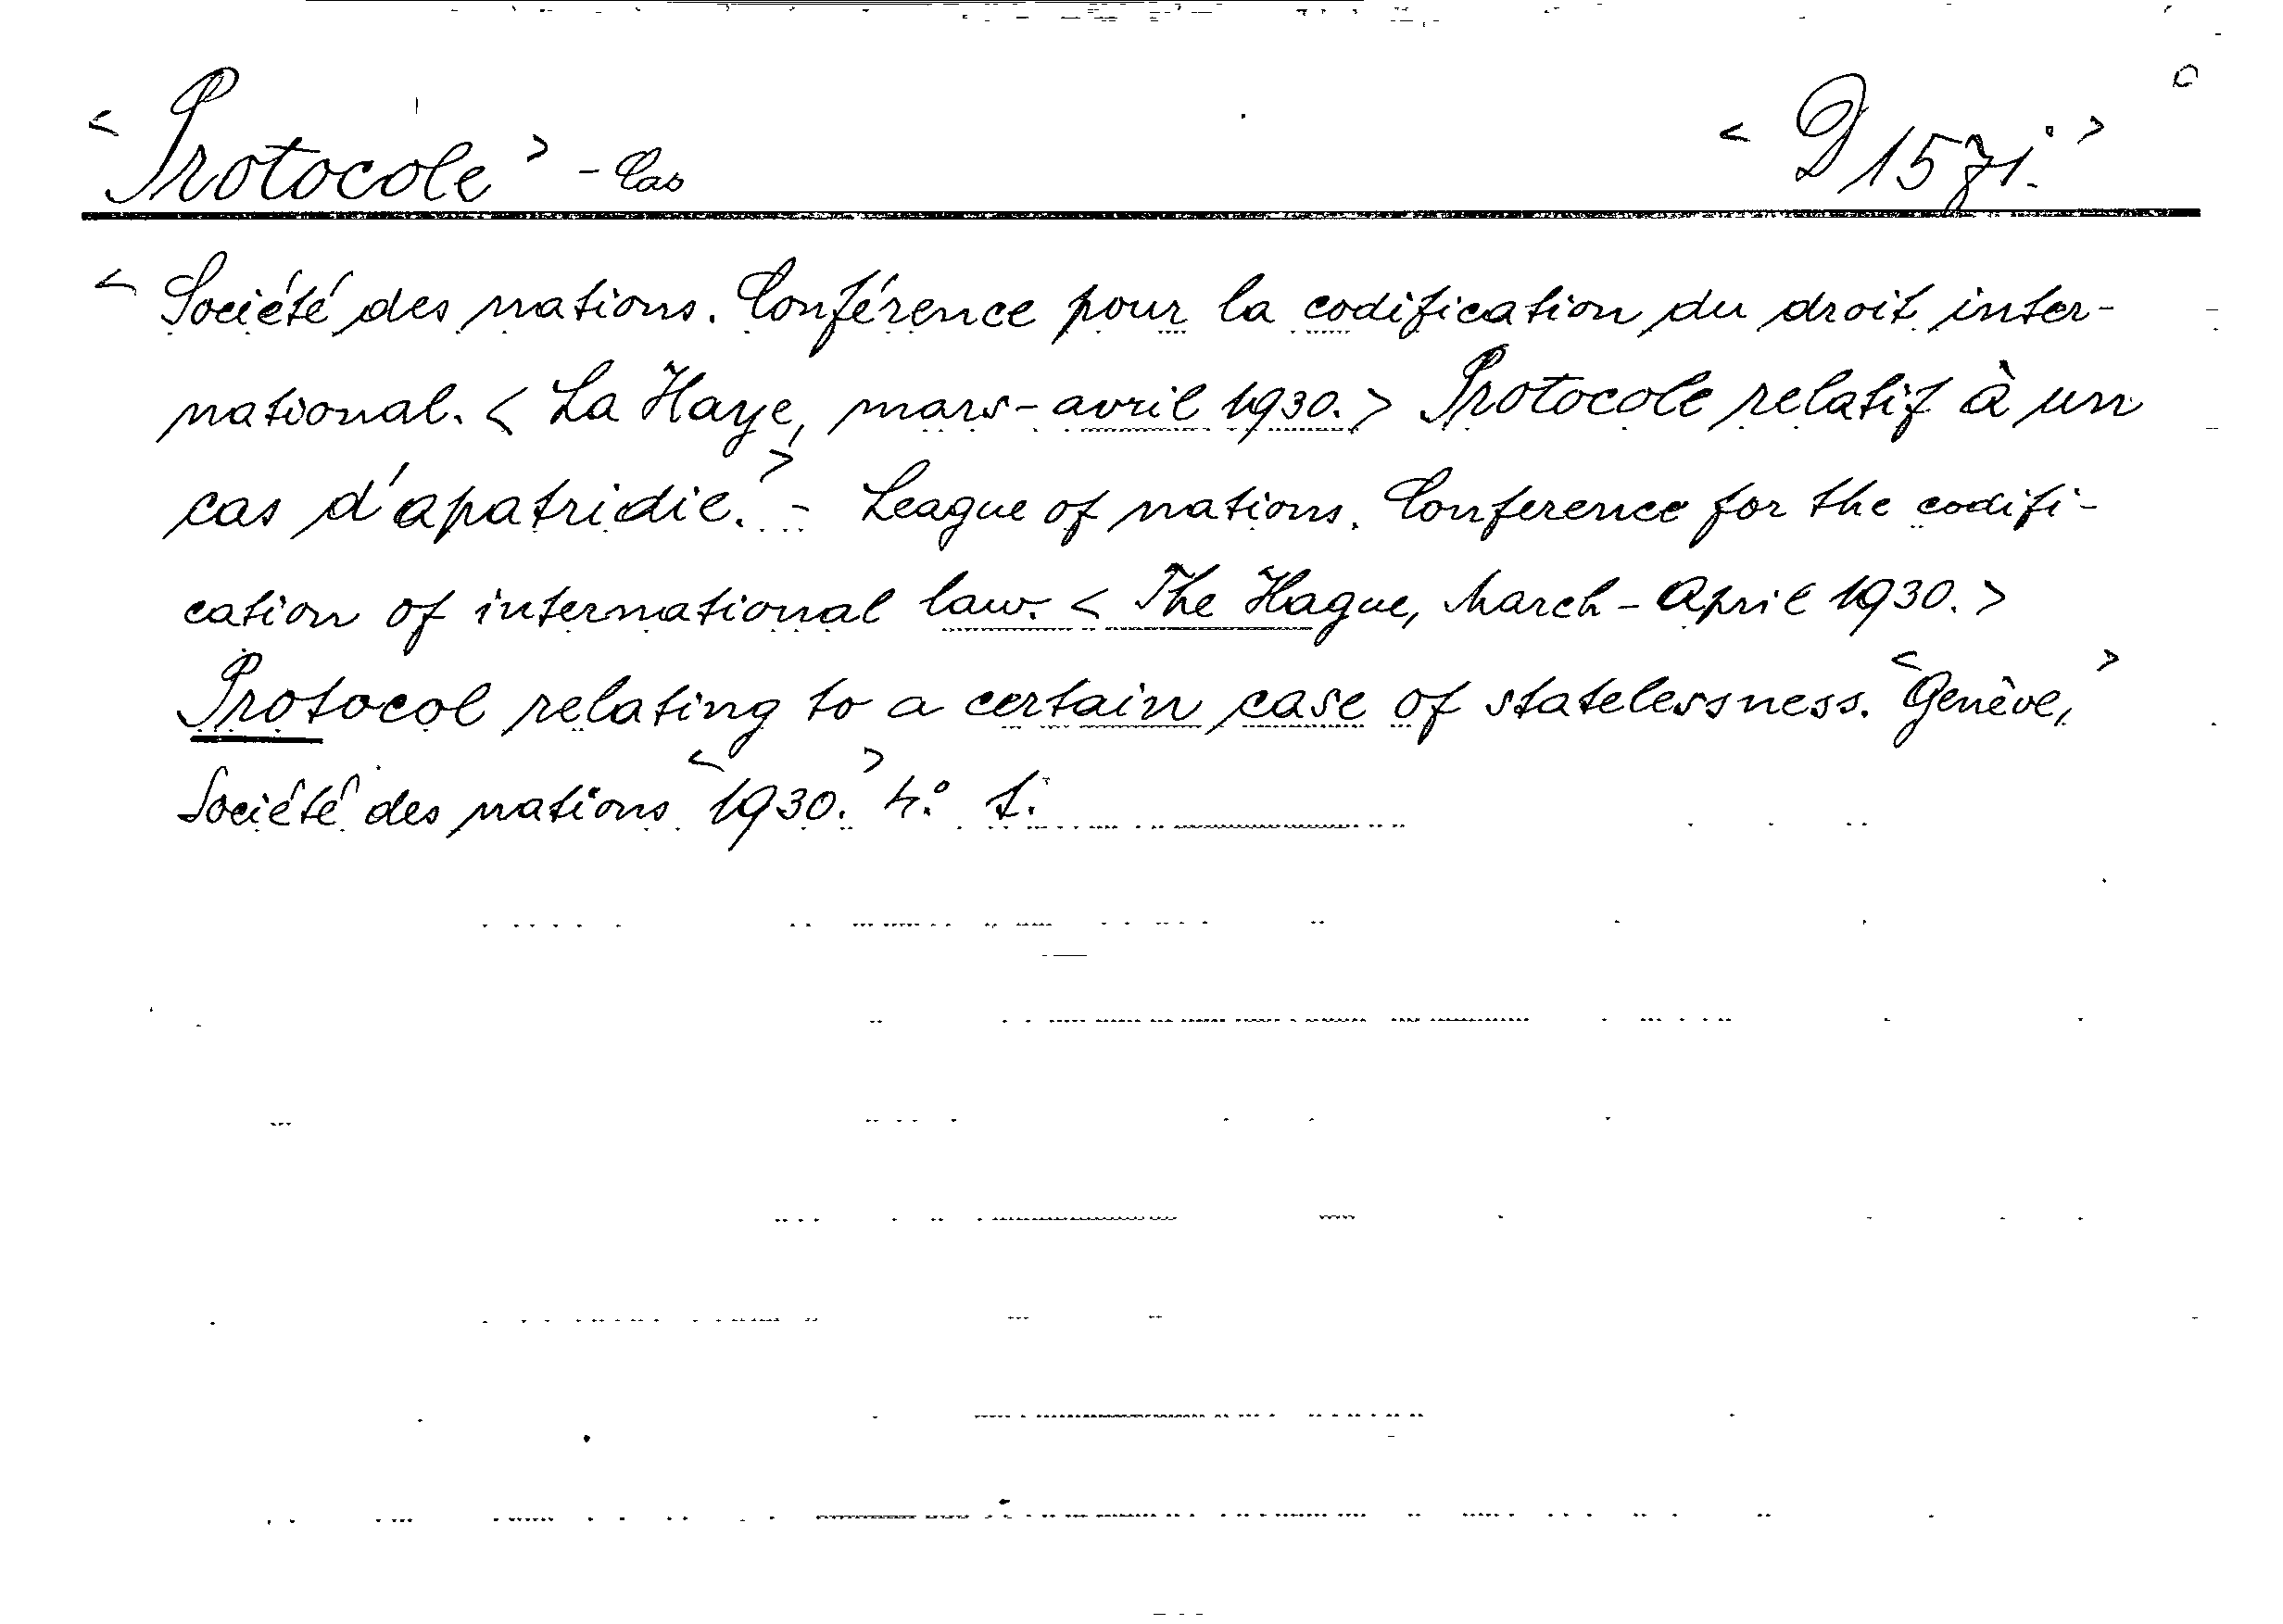 < Protocole > - Cas < D 157i. >
< Société des nations. Conférence pour la codification du droit inter-
national. < La Haye, mars-avril 1930. > Protocole relatif à un
cas d'apatridie. > - League of nations. Conference for the codifi-
cation of international law. < The Hague, March - April 1930. >
Protocol relating to a certain case of statelessness. < Genève, >
Société des nations < 1930. > 4:o